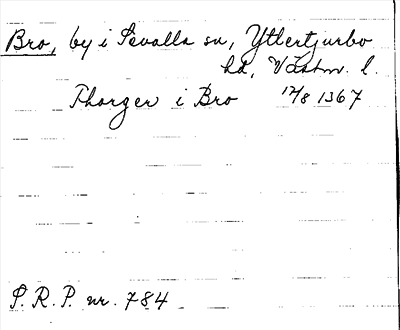 Bro, by i Sevalla sn, Yttertjurbo
hd, Västm. l.
Thorger i Bro 17/8 1367
S. R. P. nr. 784